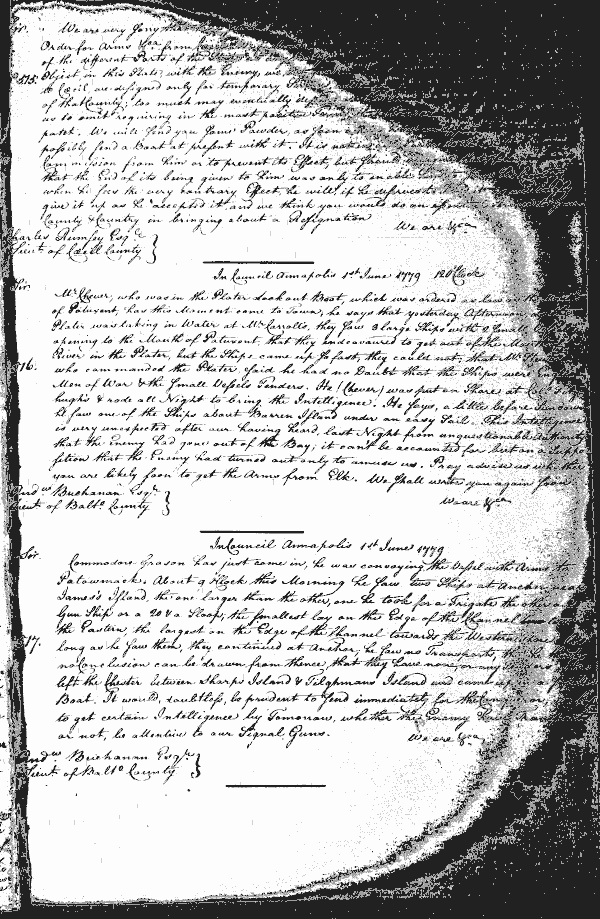 Sir.
We are very sorry that
Order for Arms &ca from
of the different Parts of the
575. Object in this State, with the Enemy, we
to Cæcil, are designed only for temporary
of that County; too much may eventually
us to omit requiring in the most positive
patch. We will send you some Powder, as soon
possibly send a Boat at present with it. It is
Commission from him or to prevent its Effect, but
that the End of its being given to him was only to enable
when he sees the very contrary Effect, he will if he
give it up as he accepted it, and we think you would do an
County & Country in bringing about a Resignation
We are &ca
Charles Rumsey Esqr
Lieut of Cæcil County
In Council Annapolis 1st June 1779 12 OClock
Sir.
Mr Chever, who was in the Plater Look out Boat, which was ordered as low as
of Patuxent, has this Moment come to Town, he says that yesterday Afternoon
Plater was taking in Water at Mr Carrolls, they saw 3 large Ships with 2 Small
opening to the Mouth of Patuxent, that they endeavoured to get out of the
River in the Plater, but the Ships came up so fast, they could not, that Mr
576. who commanded the Plater, said he had no Doubt that the Ships were
Men of War & the Small Vessels Tenders. He (Chever) was put on Shore at
& rode all Night to bring the Intelligence. He says, a little before Sundown
he saw one of the Ships about Barren Island under an easy Sail. This Intelligence
is very unexpected after our having heard, last Night from unquestionable Authority
that the Enemy had gone out of the Bay; it can't be accounted for but on a
sition that the Enemy had turned out only to amuse us. Pray advise us whether
you are likely soon to get the Arms from Elk. We shall write you again soon.
We are &ca
Andw Buchanan Esqr
Lieut of Balto County
In Council Annapolis 1st June 1779
Sir.
Commodore Grason has just come in, he was convoying the Vessel with Arms to
Patowmack. About 9 OClock this Morning he saw two Ships at Anchor
James's Island, the one larger than the other, one he took for a Frigate the other
Gun Ship or a 20 or a Sloop; the smallest lay on the Edge of the Channel
the Eastern, the largest on the Edge of the Channel towards the Western
577. long as he saw them, they continued at Anchor; he saw no Transports,
no Conclusion can be drawn from thence, that they have none, or any
left the Chester between Sharps Island & Tilghmans Island and
Boat. It would, doubtless, be prudent to send immediately, for
to get certain Intelligence by Tomorrow, whether the Enemy
or not, be attentive to our Signal Guns.
We are &ca
Andw Buchanan Esqr
Lieut of Balto County